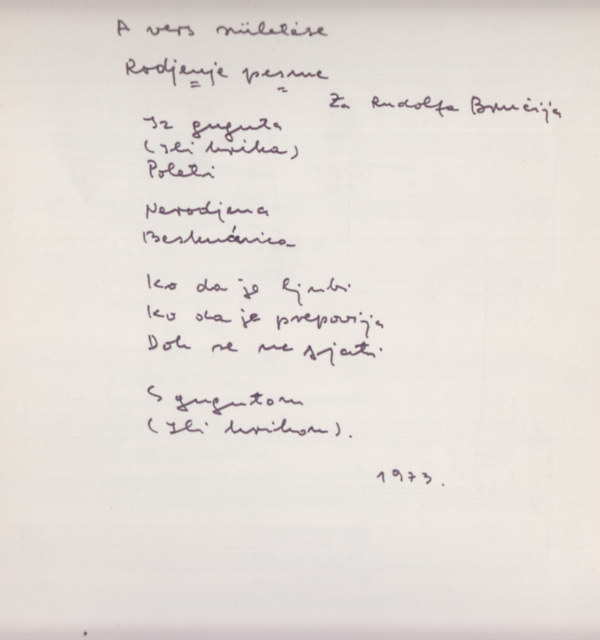 A vers születése
Rodjenje pesme
Za Rudolfa Bručija
Iz guguta
(Ili krika)
Poleti
Nerodjena
Beskućnica
Ko da je ljubi
Ko da je prepovija
Dok se ne sjati
S gugutom
(Ili krikom).
1973.